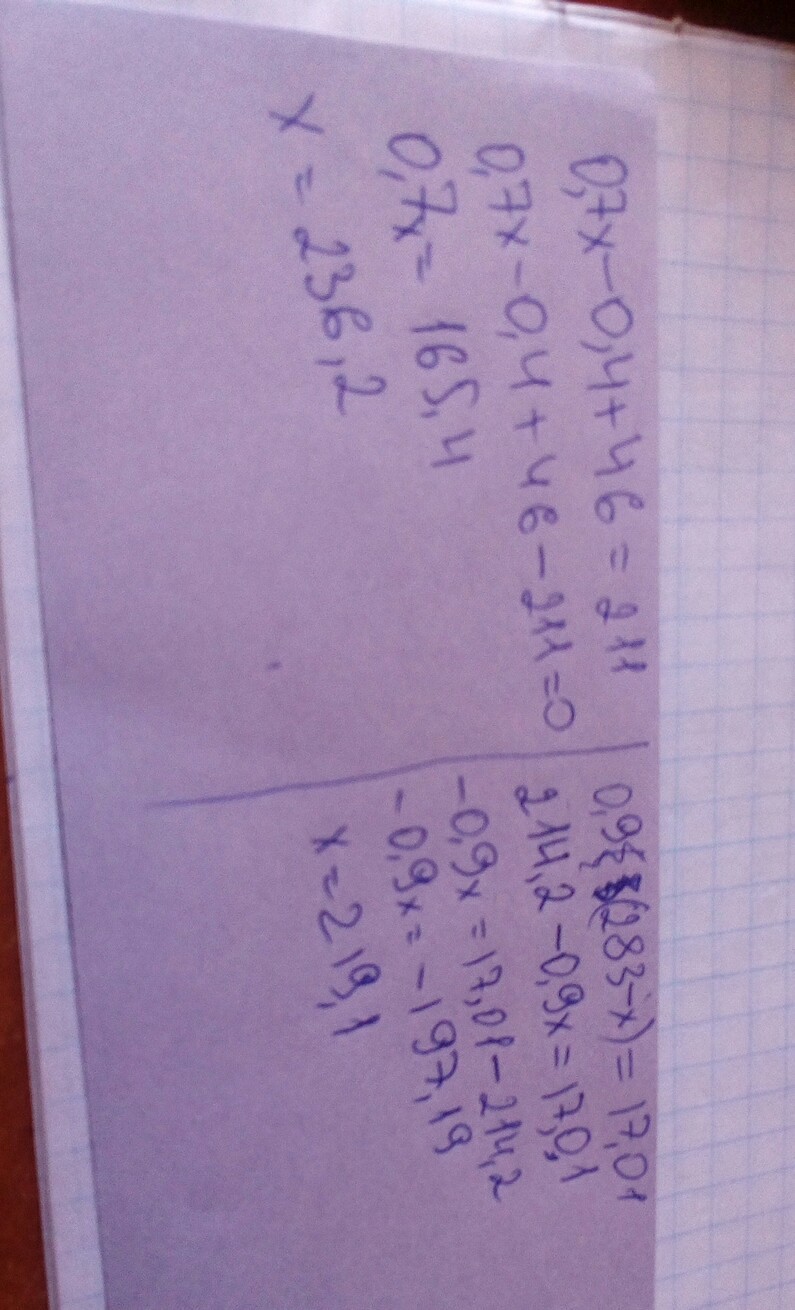 0,7x-0,4+46=211
0,7x-0,4+46-211=0
0,7x=165,4
x=236,2
0,9(283-x)=17,01
214,2-0,9x=17,0,1
-0,9x=17,01-214,2
-0,9x=-197,19
x=219,1